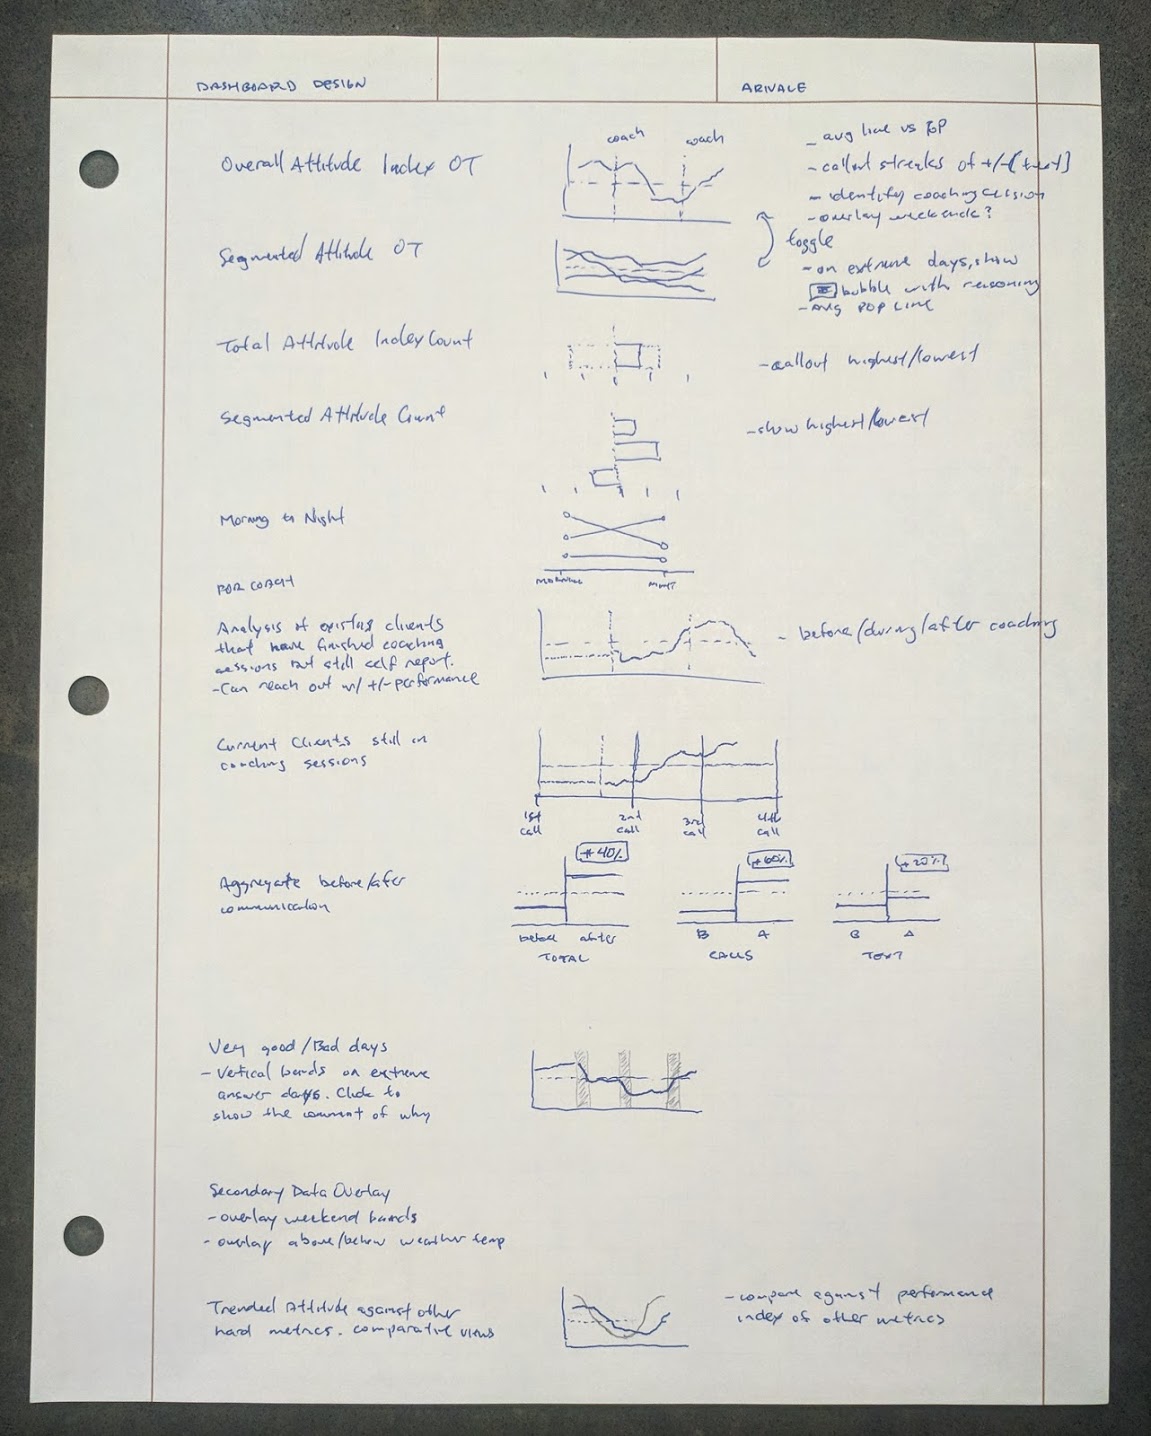 DASHBOARD DESIGN
ARIVALE
Overall Attitude Index OT
coach
coach
- avg line vs POP
- callout streaks of +/- [text]
- identify coaching session
- overlay weekends?
toggle
Segmented Attitude OT
- on extreme days, show
bubble with reasoning
- AVG POP LINE
Total Attitude Index Count
- callout highest/lowest
Segmented Attitude Count
- show highest/lowest
Morning to Night
MORNING
NIGHT
FOR COACH
Analysis of existing clients
that have finished coaching
sessions but still self report.
- Can reach out w/ +/- performance
- before/during/after coaching
Current Clients still in
coaching sessions
1st call
2nd call
3rd call
4th call
Aggregate before/after
communication
+40%
before after
TOTAL
+60%
B A
CALLS
+20%
B A
TEXT
Very good/Bad days
- Vertical bands on extreme
answer days. Click to
show the comment of why
Secondary Data Overlay
- overlay weekend bands
- overlay above/below weather temp
Trended Attitude against other
hard metrics. comparative views
- compare against performance
index of other metrics